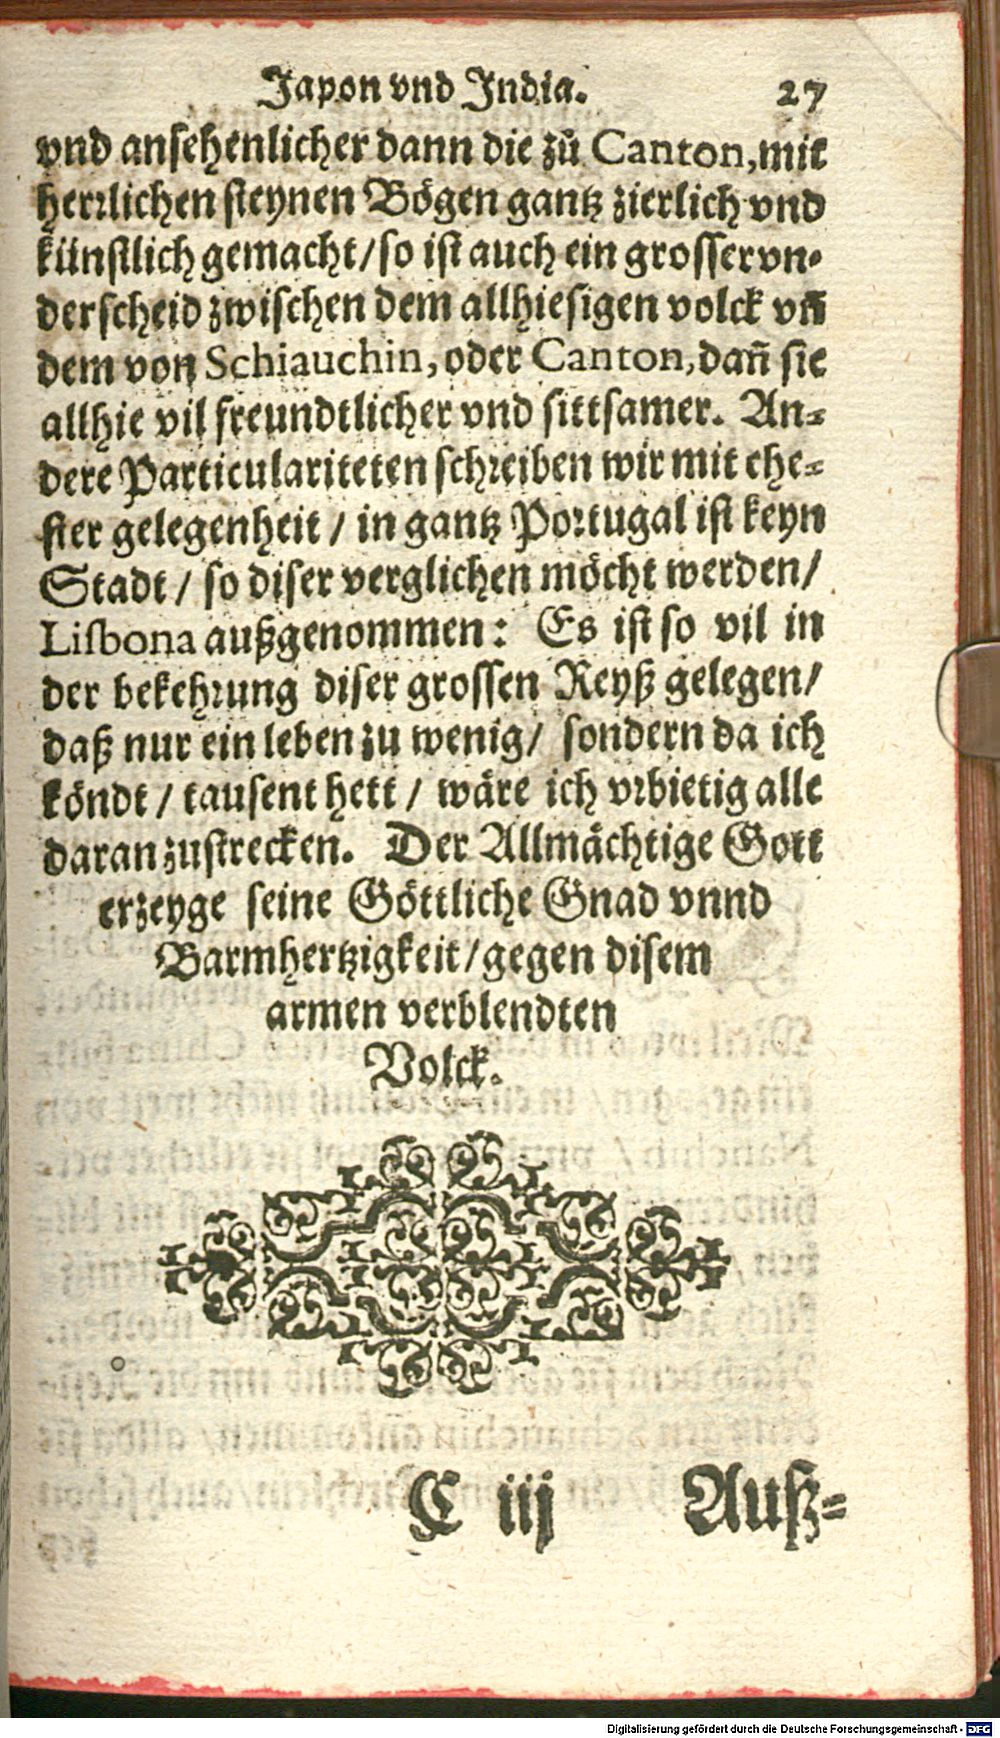 Japon vnd India. 27
vnd ansehenlicher dann die zů Canton, mit
herrlichen steynen Bögen gantz zierlich vnd
künstlich gemacht/ so ist auch ein grosser vn-
derscheid zwischen dem allhiesigen volck vñ
dem von Schiauchin, oder Canton, dañ sie
allhie vil freundtlicher vnd sittsamer. An-
dere Particulariteten schreiben wir mit ehe-
ster gelegenheit / in gantz Portugal ist keyn
Stadt / so diser verglichen möcht werden/
Lisbona außgenommen: Es ist so vil in
der bekehrung diser grossen Reyß gelegen/
daß nur ein leben zu wenig/ sondern da ich
köndt / tausent hett / wäre ich vrbietig alle
daran zustrecken. Der Allmächtige Gott
erzeyge seine Göttliche Gnad vnnd
Barmhertzigkeit/ gegen disem
armen verblendten
Volck.
C iij Auß-
Digitalisierung gefördert durch die Deutsche Forschungsgemeinschaft - DFG